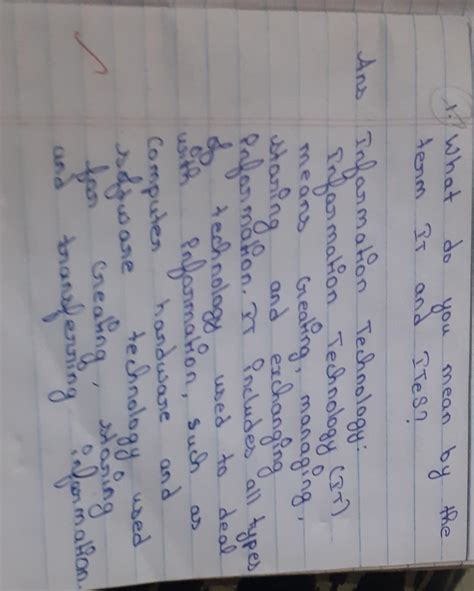 1. What do you mean by the
term IT and ITeS?
Ans Information Technology:
Information Technology (IT)
means creating, managing,
storing and exchanging
Information. IT includes all types
of technology used to deal
with Information, such as
Computer hardware and
software technology used
for creating, storing
and transferring information.